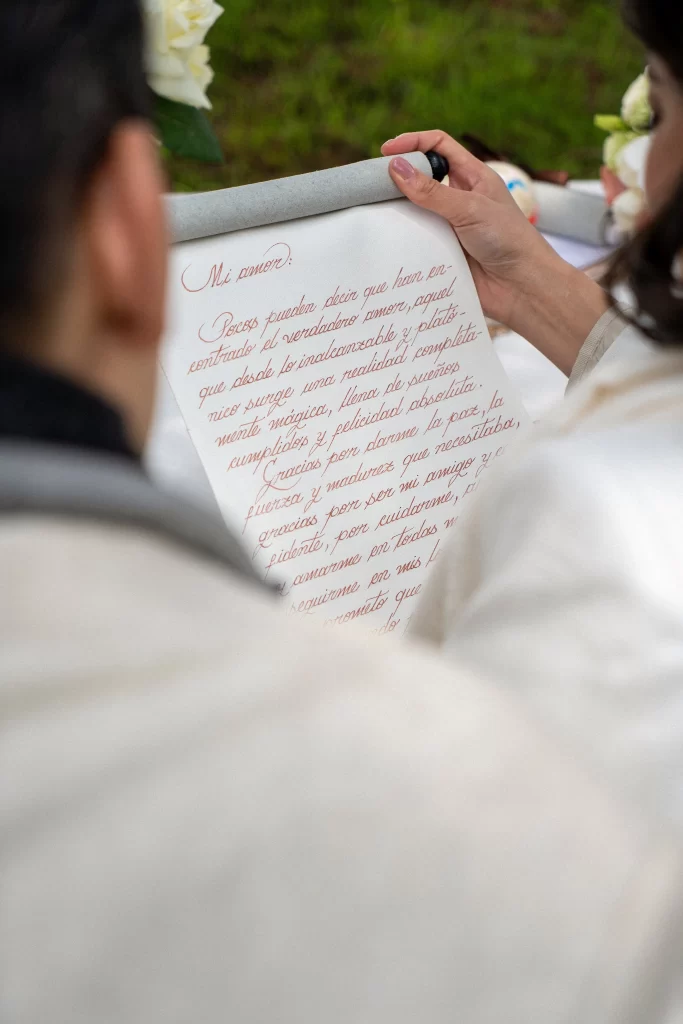 Mi amor:
Pocos pueden decir que han en-
contrado el verdadero amor, aquel
que desde lo inalcanzable y plató-
nico surge una realidad completa-
mente mágica, llena de sueños
cumplidos y felicidad absoluta.
Gracias por darme la paz, la
fuerza y madurez que necesitaba,
gracias por ser mi amigo y
fidente, por cuidarme,
amarme en todas
seguirme en mis
prometo que